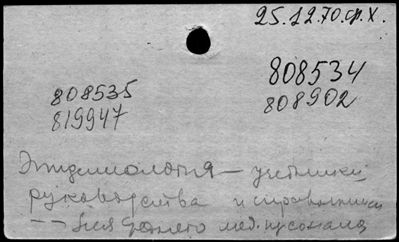 25.12.70.ср.х.
808535 808534
819947 808902
Эпидемиология — учебники,
руководства и справочники
— — для среднего мед. персонала